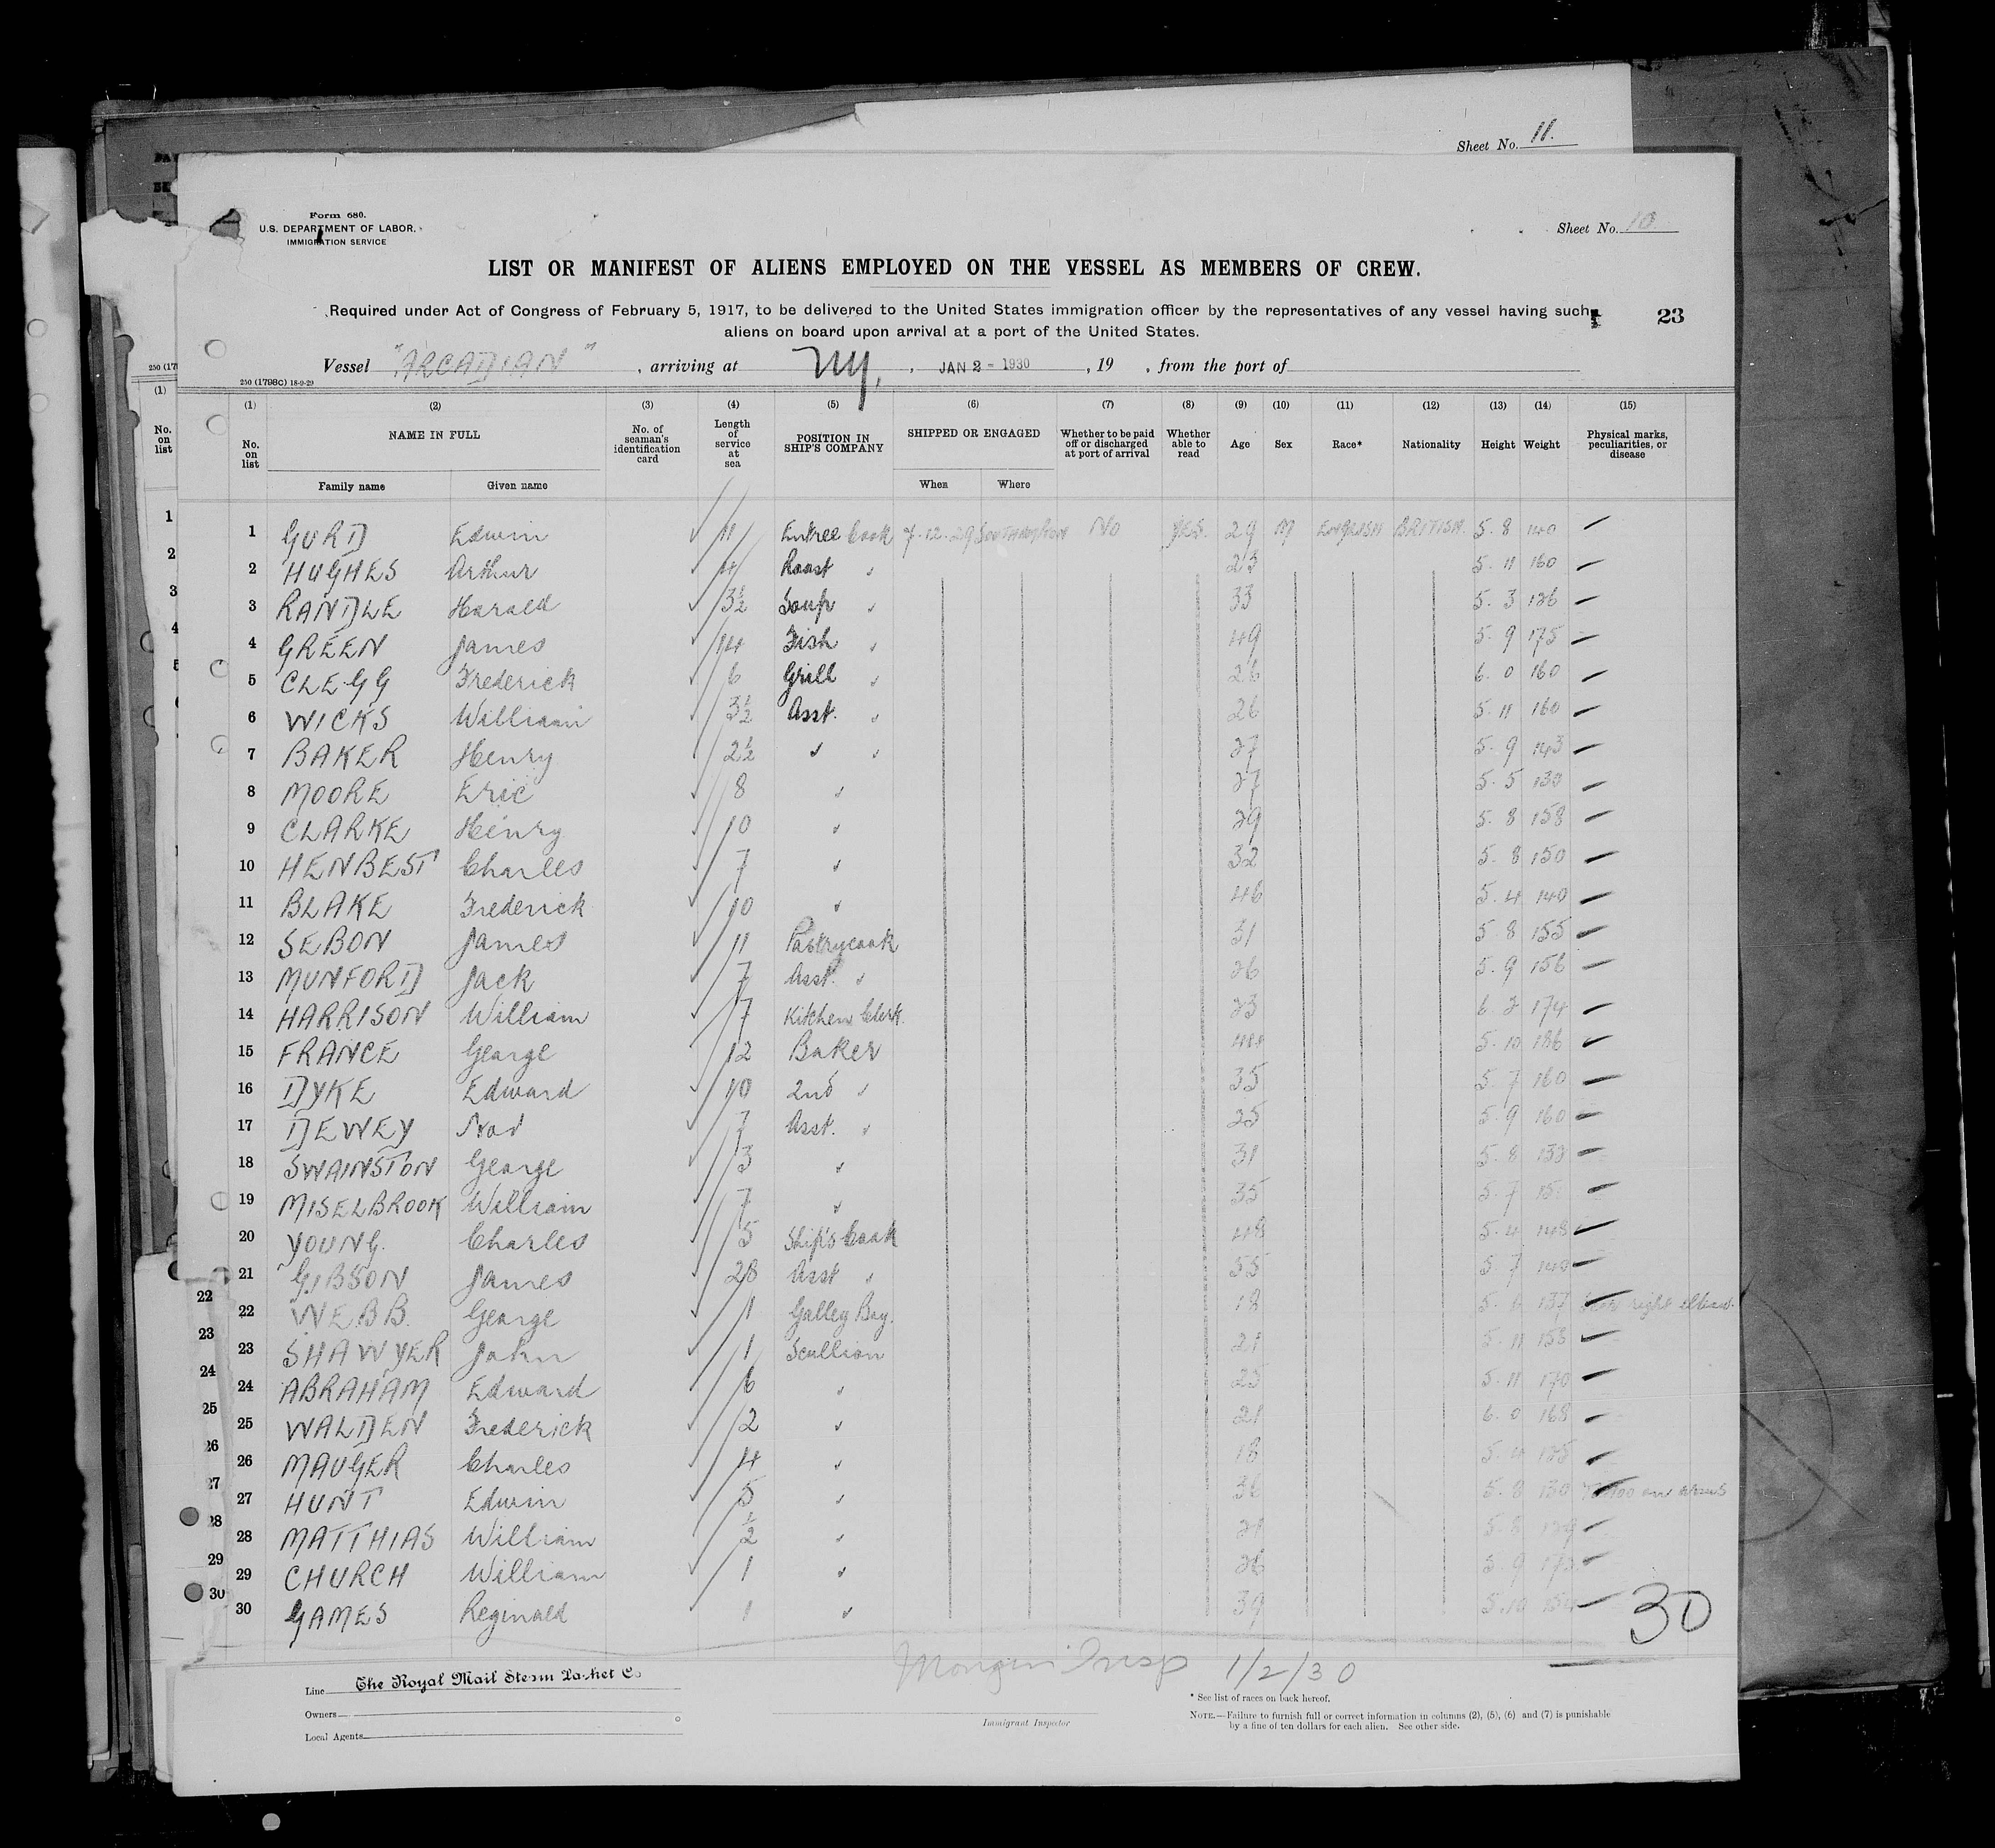 Sheet No. 11.
Form 680.
U.S. DEPARTMENT OF LABOR.
IMMIGRATION SERVICE
Sheet No. 10
LIST OR MANIFEST OF ALIENS EMPLOYED ON THE VESSEL AS MEMBERS OF CREW.
Required under Act of Congress of February 5, 1917, to be delivered to the United States immigration officer by the representatives of any vessel having such
aliens on board upon arrival at a port of the United States.
23
Vessel "ARCADIAN", arriving at NY, JAN 2 - 1930, 19 , from the port of
250 (1798C) 18-9-29
(1) (2) (3) (4) (5) (6) (7) (8) (9) (10) (11) (12) (13) (14) (15)
No. on list NAME IN FULL No. of seaman's identification card Length of service at sea POSITION IN SHIP'S COMPANY SHIPPED OR ENGAGED Whether to be paid off or discharged at port of arrival Whether able to read Age Sex Race* Nationality Height Weight Physical marks, peculiarities, or disease
Family name Given name When Where
1 GURD Edwin 11 Entree Cook 7.12.29 SOUTHAMPTON No yes. 29 M ENGLISH BRITISH. 5. 8 140
2 HUGHES Arthur 4 Roast " 23 5. 11 160
3 RANDLE Harold 3½ Soup " 33 5. 3 126
4 GREEN James 14 Fish " 49 5. 9 175
5 CLEGG Frederick 6 Grill " 26 6. 0 160
6 WICKS William 3½ Asst. " 26 5. 11 160
7 BAKER Henry 2½ " " 27 5. 9 143
8 MOORE Eric 8 " 27 5. 5 130
9 CLARKE Henry 10 " 29 5. 8 158
10 HENBEST Charles 7 " 32 5. 8 150
11 BLAKE Frederick 10 " 46 5. 4 140
12 SEBON James 11 Pastrycook 31 5. 8 155
13 MUNFORD Jack 7 Asst. " 26 5. 9 156
14 HARRISON William 7 Kitchen Clerk. 23 6 2 174
15 FRANCE George 12 Baker 44 5. 10 186
16 DYKE Edward 10 2nd " 35 5. 7 160
17 DEWEY 7 Asst. " 25 5. 9 160
18 SWAINSTON George 3 " 31 5. 8
19 MISELBROOK William 7 " 35 5. 7
20 YOUNG. Charles 5 Ship's Cook 48 5. 4 148
21 GIBSON James 28 Asst " 55 5. 7 140
22 WEBB. George 1 Galley Boy. 18 5. 137 Scar right elbow.
23 SHAWYER John 1 Scullion 21 5. 11
24 ABRAHAM Edward 6 " 25 5. 11 170
25 WALDEN Frederick 2 " 21 6. 0 168
26 MAUGER Charles 4 " 18 5. 4
27 HUNT Edwin 5 " 5. 8 130 Tattoo on arms
28 MATTHIAS William ½ " 21 5. 8
29 CHURCH William 1 " 26 5. 9
30 GAMES Reginald 1 " 39 5. 10
30
Insp 1/2/30
Line The Royal Mail Steam Packet Co
Owners
Local Agents
Immigrant Inspector
* See list of races on back hereof.
NOTE.—Failure to furnish full or correct information in columns (2), (5), (6) and (7) is punishable
by a fine of ten dollars for each alien. See other side.